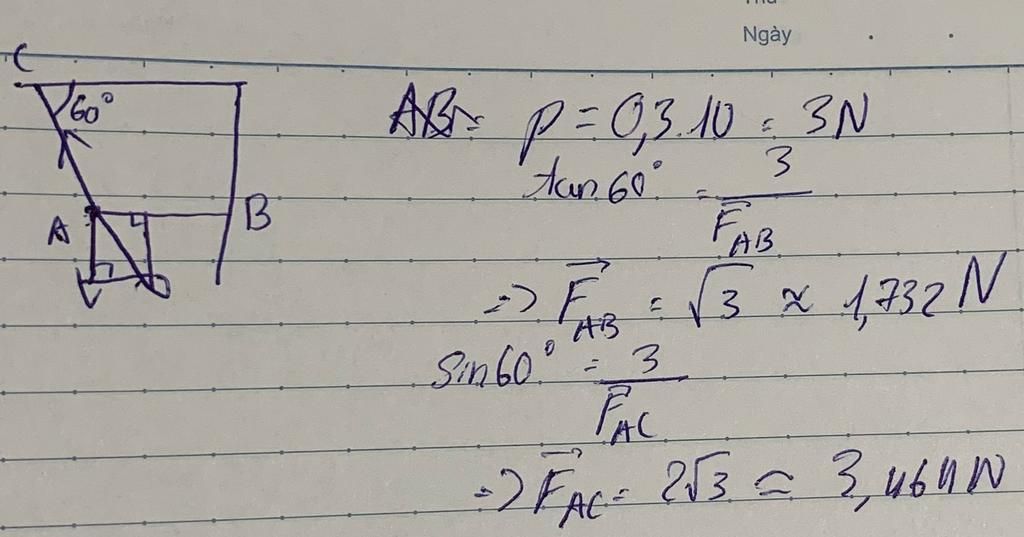 Ngày
C
60°
A
B
AB = P = 0,3.10 = 3N
tan 60° = 3 / F⃗AB
=> F⃗AB = √3 ≈ 1,732 N
sin 60° = 3 / F⃗AC
=> F⃗AC = 2√3 ≃ 3,464 N